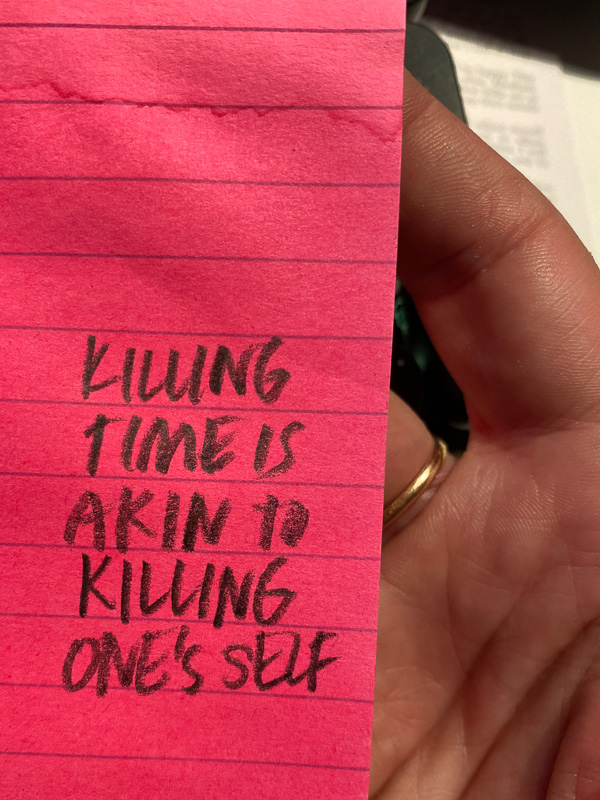 KILLING
TIME IS
AKIN TO
KILLING
ONE'S SELF